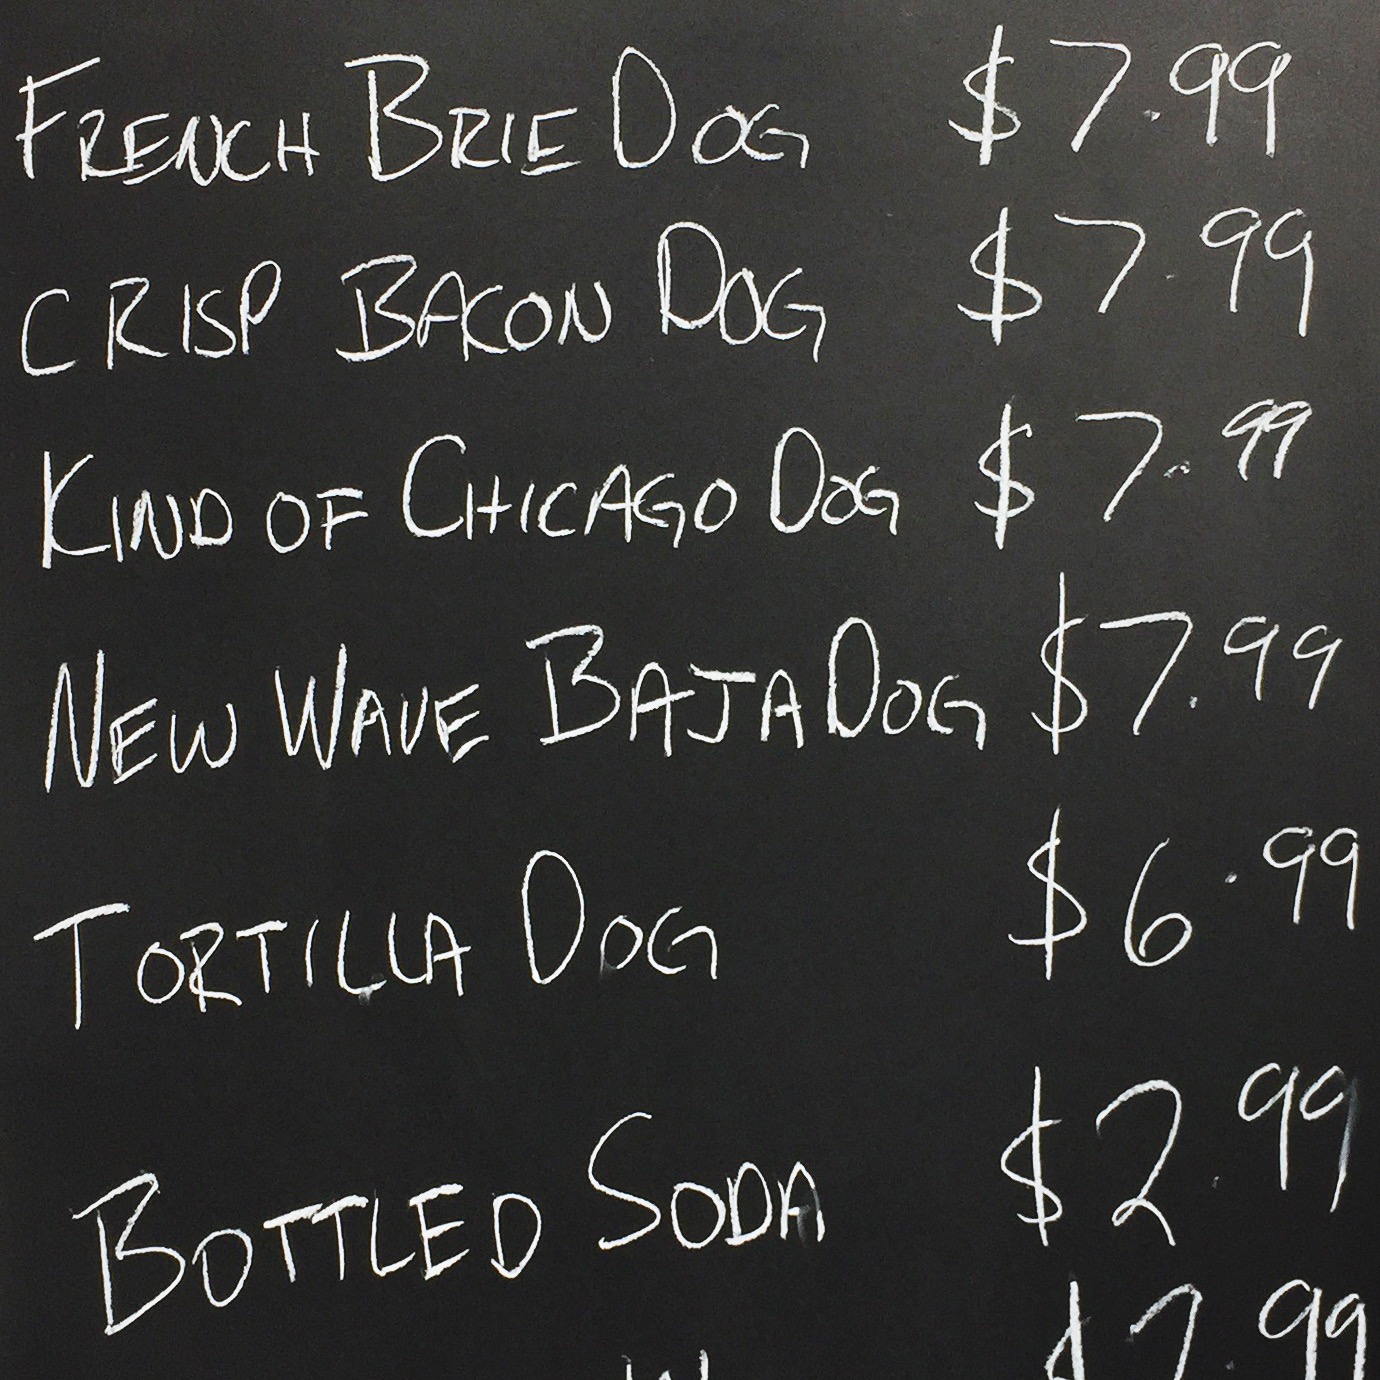 FRENCH BRIE DOG $7.99
CRISP BACON DOG $7.99
KIND OF CHICAGO DOG $7.99
NEW WAVE BAJA DOG $7.99
TORTILLA DOG $6.99
BOTTLED SODA $2.99